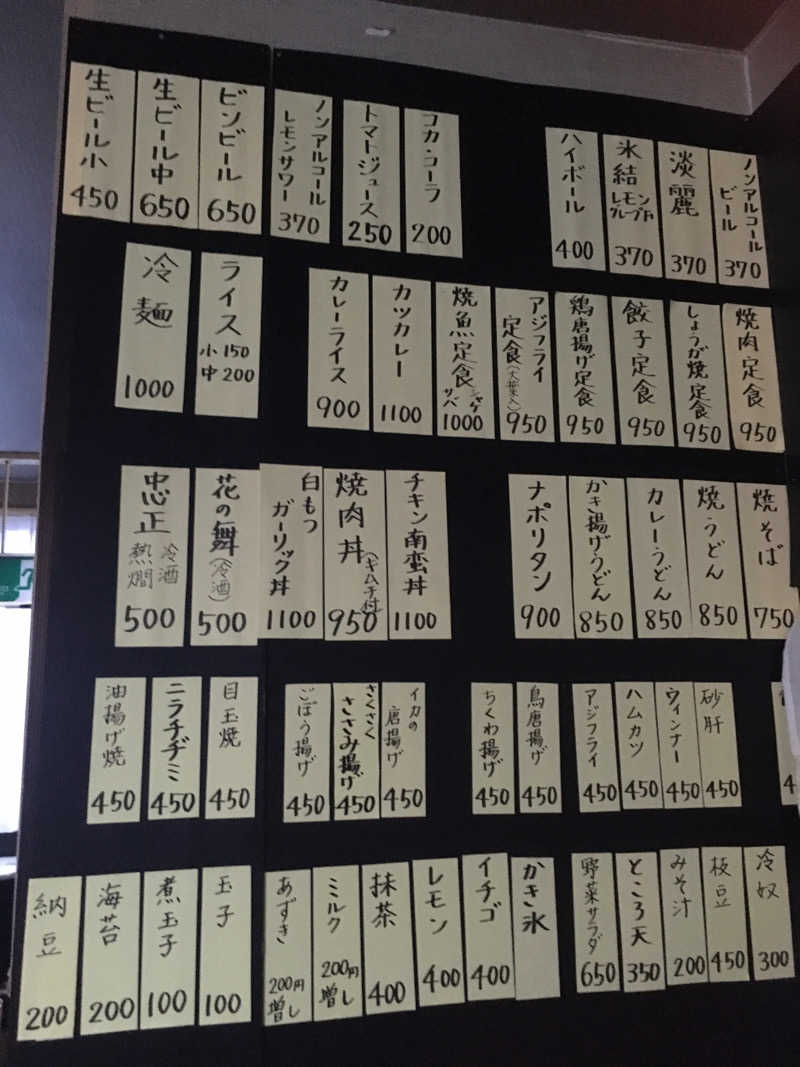 ノンアルコールビール 370
淡麗 370
氷結 レモン 370
ハイボール 400
コカ・コーラ 200
トマトジュース 250
ノンアルコールレモンサワー 370
ビンビール 650
生ビール中 650
生ビール小 450
焼肉定食 950
しょうが焼定食 950
餃子定食 950
鶏唐揚げ定食 950
アジフライ定食(大葉入) 950
焼魚定食 シャケ サバ 1000
カツカレー 1100
カレーライス 900
ライス 小150 中200
冷麺 1000
焼そば 750
焼うどん 850
カレーうどん 850
かき揚げうどん 850
ナポリタン 900
チキン南蛮丼 1100
焼肉丼(キムチ付) 950
白もつガーリック丼 1100
花の舞(冷酒) 500
忠正 冷酒 熱燗 500
砂肝 450
ウィンナー 450
ハムカツ 450
アジフライ 450
鳥唐揚げ 450
ちくわ揚げ 450
イカの唐揚げ 450
さくさくささみ揚げ 450
ごぼう揚げ 450
目玉焼 450
ニラチヂミ 450
油揚げ焼 450
冷奴 300
枝豆 450
みそ汁 200
ところ天 350
野菜サラダ 650
かき氷
イチゴ 400
レモン 400
抹茶 400
ミルク 200円増し
あずき 200円増し
玉子 100
煮玉子 100
海苔 200
納豆 200